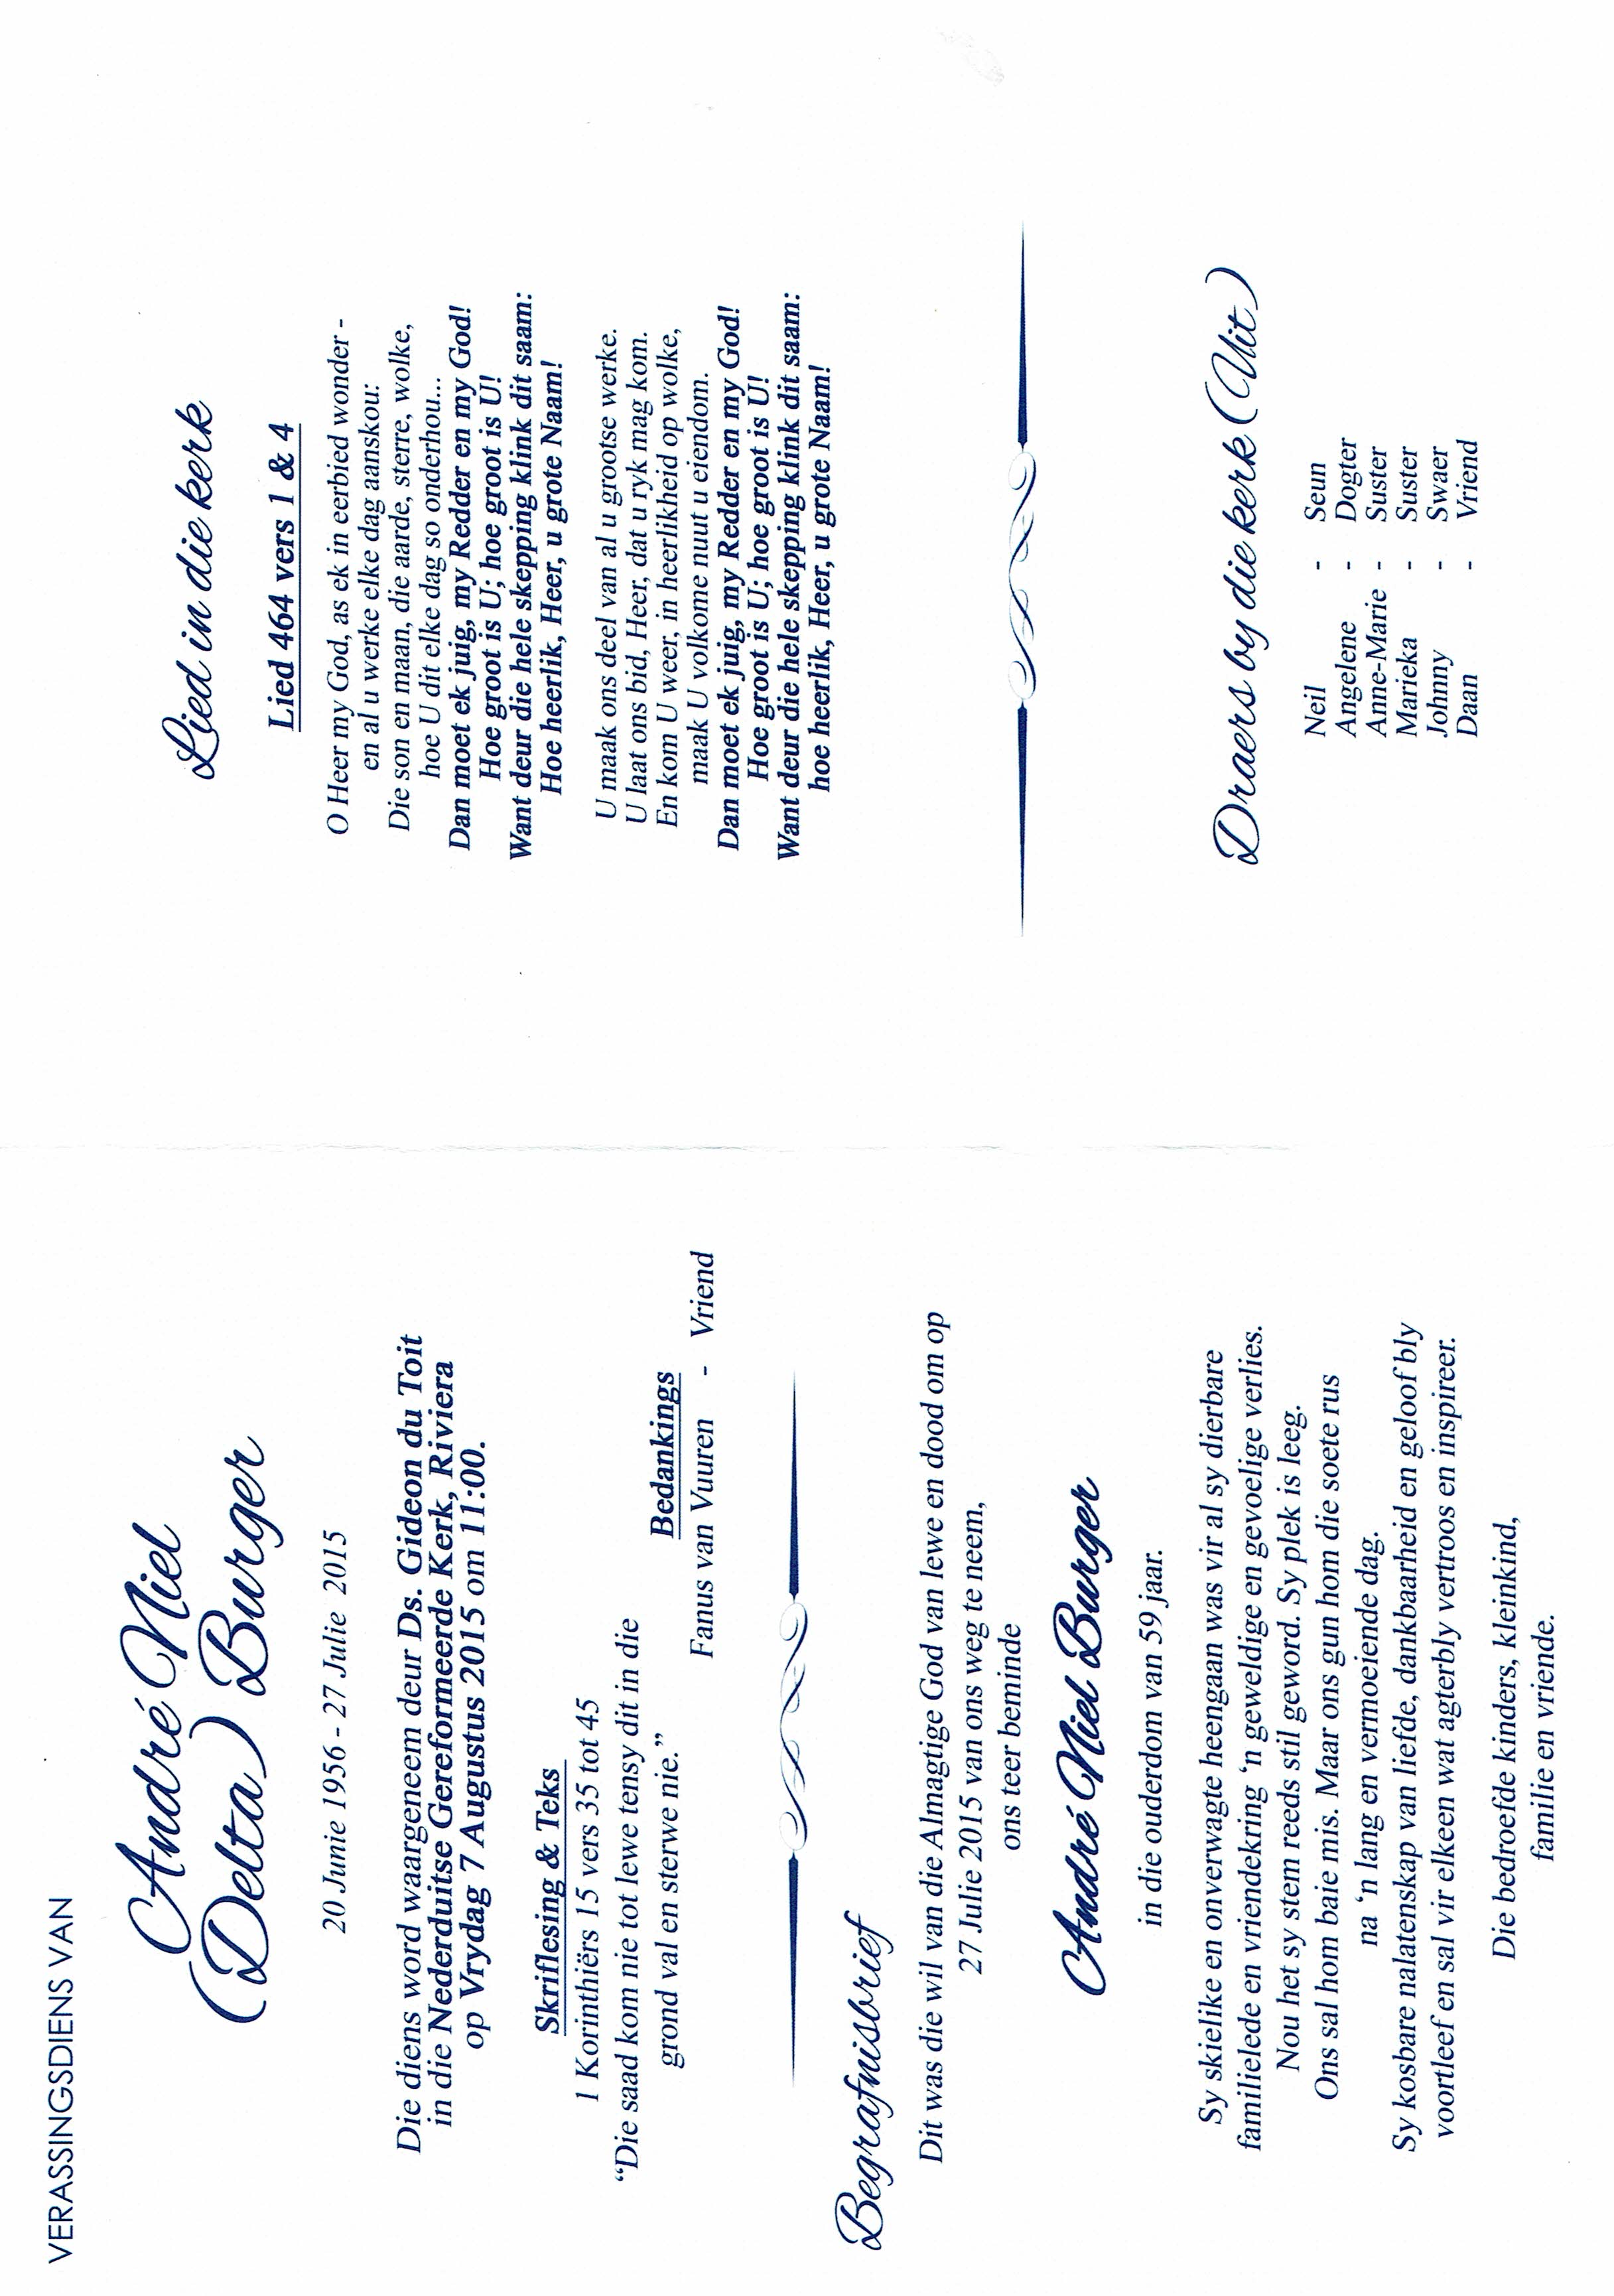 VERASSINGSDIENS VAN
André Niel
(Delta) Burger
20 Junie 1956 - 27 Julie 2015
Die diens word waargeneem deur Ds. Gideon du Toit
in die Nederduitse Gereformeerde Kerk, Riviera
op Vrydag 7 Augustus 2015 om 11:00.
Skriflesing & Teks
1 Korinthiërs 15 vers 35 tot 45
“Die saad kom nie tot lewe tensy dit in die
grond val en sterwe nie.”
Bedankings
Fanus van Vuuren - Vriend
Begrafnisbrief
Dit was die wil van die Almagtige God van lewe en dood om op
27 Julie 2015 van ons weg te neem,
ons teer beminde
André Niel Burger
in die ouderdom van 59 jaar.
Sy skielike en onverwagte heengaan was vir al sy dierbare
familielede en vriendekring ‘n geweldige en gevoelige verlies.
Nou het sy stem reeds stil geword. Sy plek is leeg.
Ons sal hom baie mis. Maar ons gun hom die soete rus
na ‘n lang en vermoeiende dag.
Sy kosbare nalatenskap van liefde, dankbaarheid en geloof bly
voortleef en sal vir elkeen wat agterbly vertroos en inspireer.
Die bedroefde kinders, kleinkind,
familie en vriende.
Lied in die kerk
Lied 464 vers 1 & 4
O Heer my God, as ek in eerbied wonder -
en al u werke elke dag aanskou:
Die son en maan, die aarde, sterre, volke,
hoe U dit elke dag so onderhou...
Dan moet ek juig, my Redder en my God!
Hoe groot is U; hoe groot is U!
Want deur die hele skepping klink dit saam:
Hoe heerlik, Heer, u grote Naam!
U maak ons deel van al u grootse werke.
U laat ons bid, Heer, dat u ryk mag kom.
En kom U weer, in heerlikheid op wolke,
maak U volkome nuut u eiendom.
Dan moet ek juig, my Redder en my God!
Hoe groot is U; hoe groot is U!
Want deur die hele skepping klink dit saam:
hoe heerlik, Heer, u grote Naam!
Draers by die kerk (Uit)
Neil - Seun
Angelene - Dogter
Anne-Marie - Suster
Marieka - Suster
Johnny - Swaer
Daan - Vriend